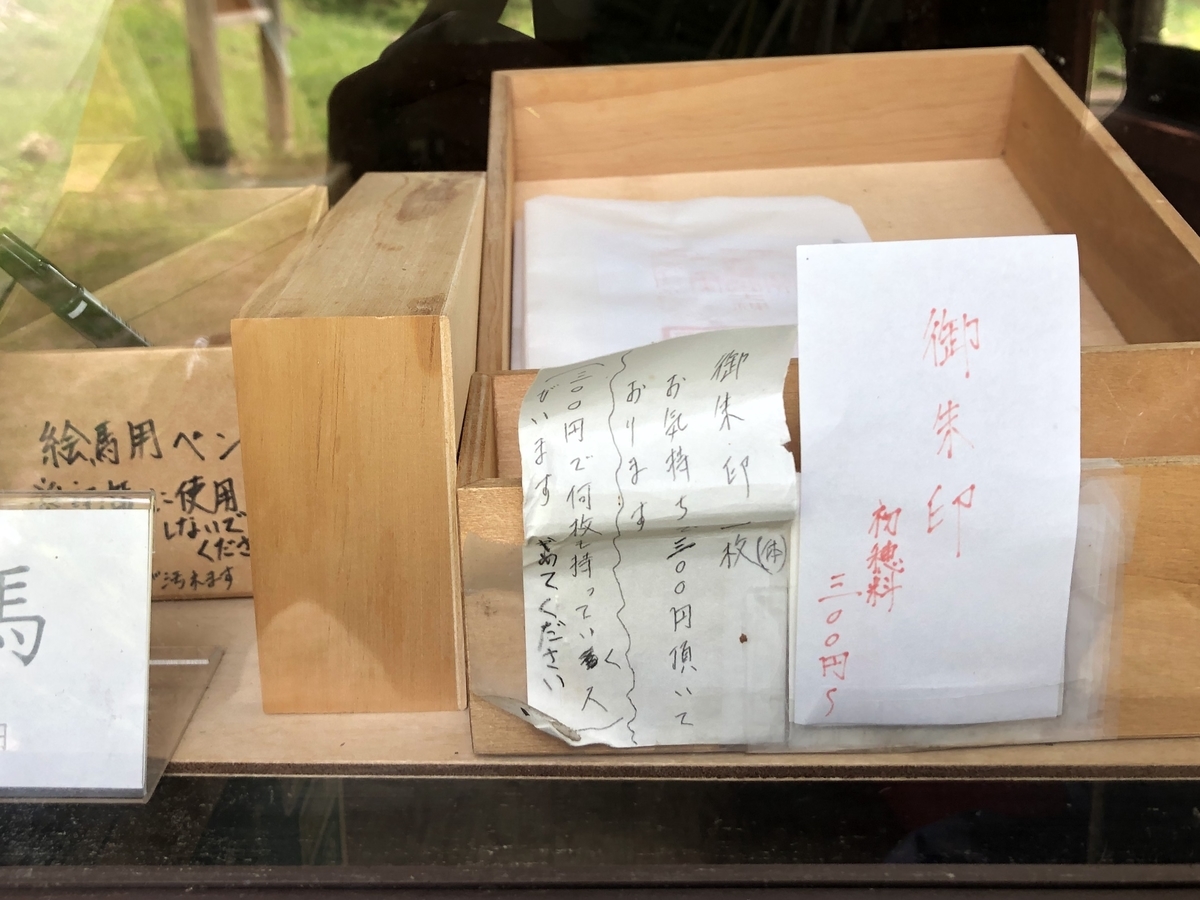 御朱印
初穂料
三〇〇円〜
御朱・印 一枚(体)
お気持ち三〇〇円頂いて
おります
(三〇〇円で何枚も持っていく人
がいます やめてください
絵馬用ペン
に使用
しないで
くださ
が汚れます
馬